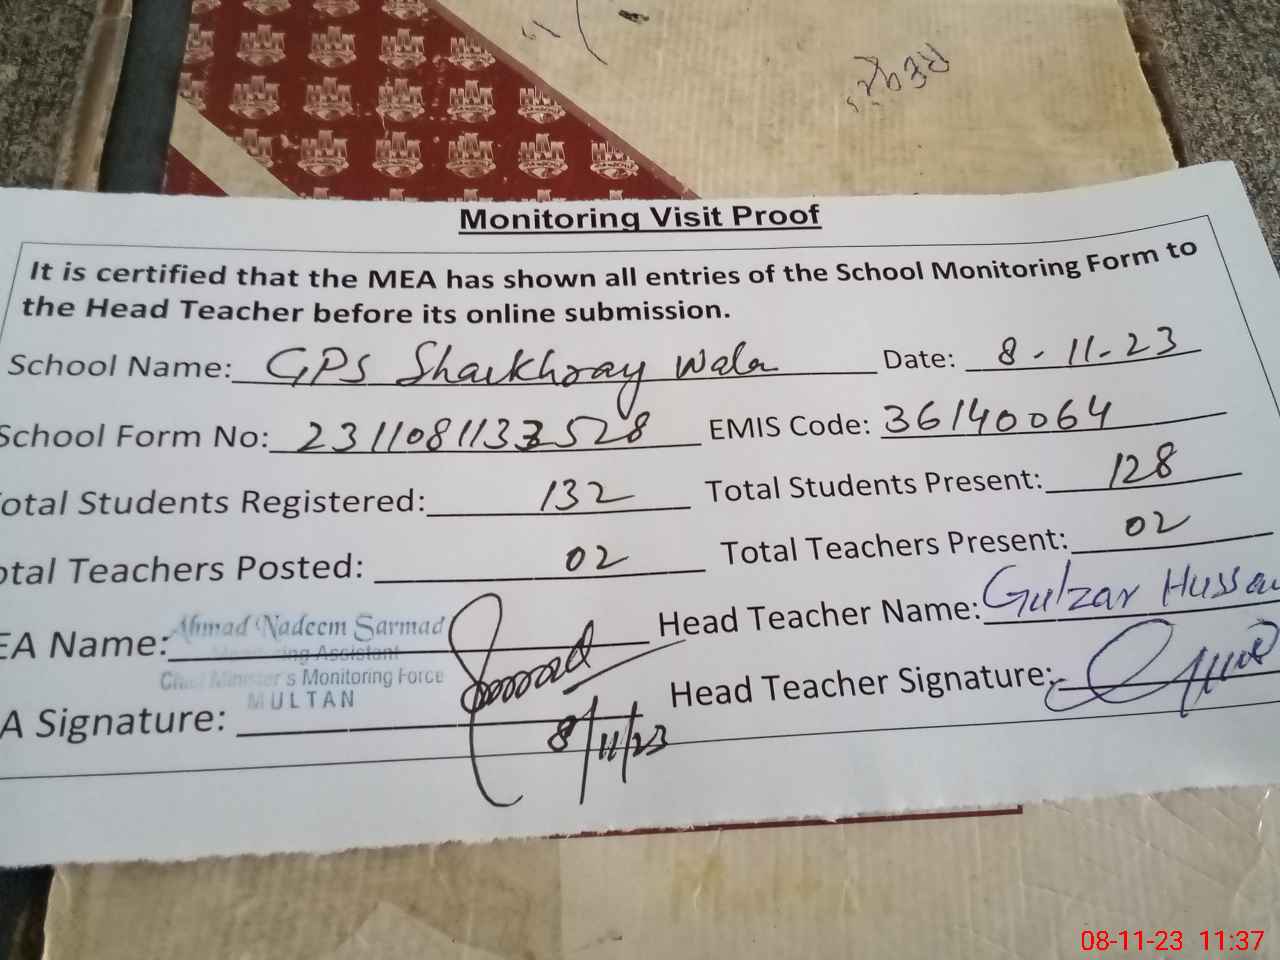 Monitoring Visit Proof
It is certified that the MEA has shown all entries of the School Monitoring Form to
the Head Teacher before its online submission.
School Name: GPS Shaikhray Wala Date: 8-11-23
School Form No: 2311081133528 EMIS Code: 36140064
otal Students Registered: 132 Total Students Present: 128
otal Teachers Posted: 02 Total Teachers Present: 02
EA Name: Ahmad Nadeem Sarmad Head Teacher Name: Gulzar Hussai
Monitoring Assistant
Chief Minister's Monitoring Force
MULTAN
A Signature: Head Teacher Signature:
8/11/23
08-11-23 11:37